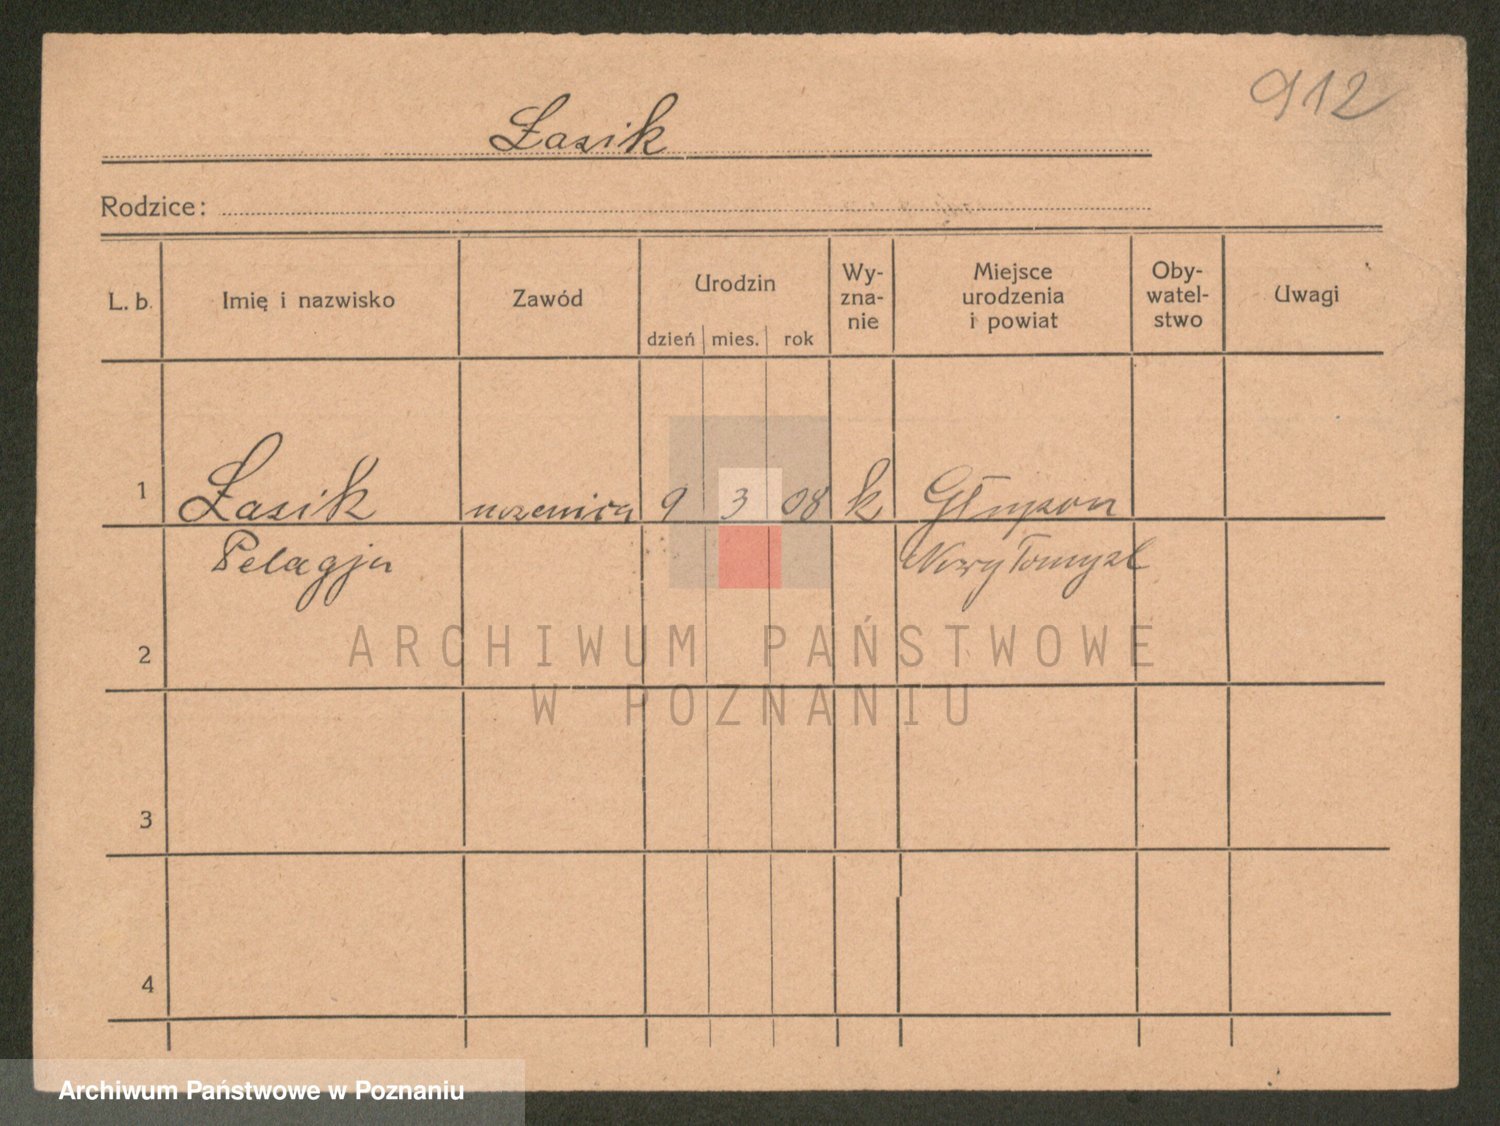 912
Łasik
Rodzice:
L. b. Imię i nazwisko Zawód Urodzin dzień mies. rok Wy-zna-nie Miejsce urodzenia i powiat Oby-watel-stwo Uwagi
1 Łasik uczenica 9 3 08 k
Pelagja Nowy Tomyśl
2
3
4
ARCHIWUM PAŃSTWOWE
W POZNANIU
Archiwum Państwowe w Poznaniu